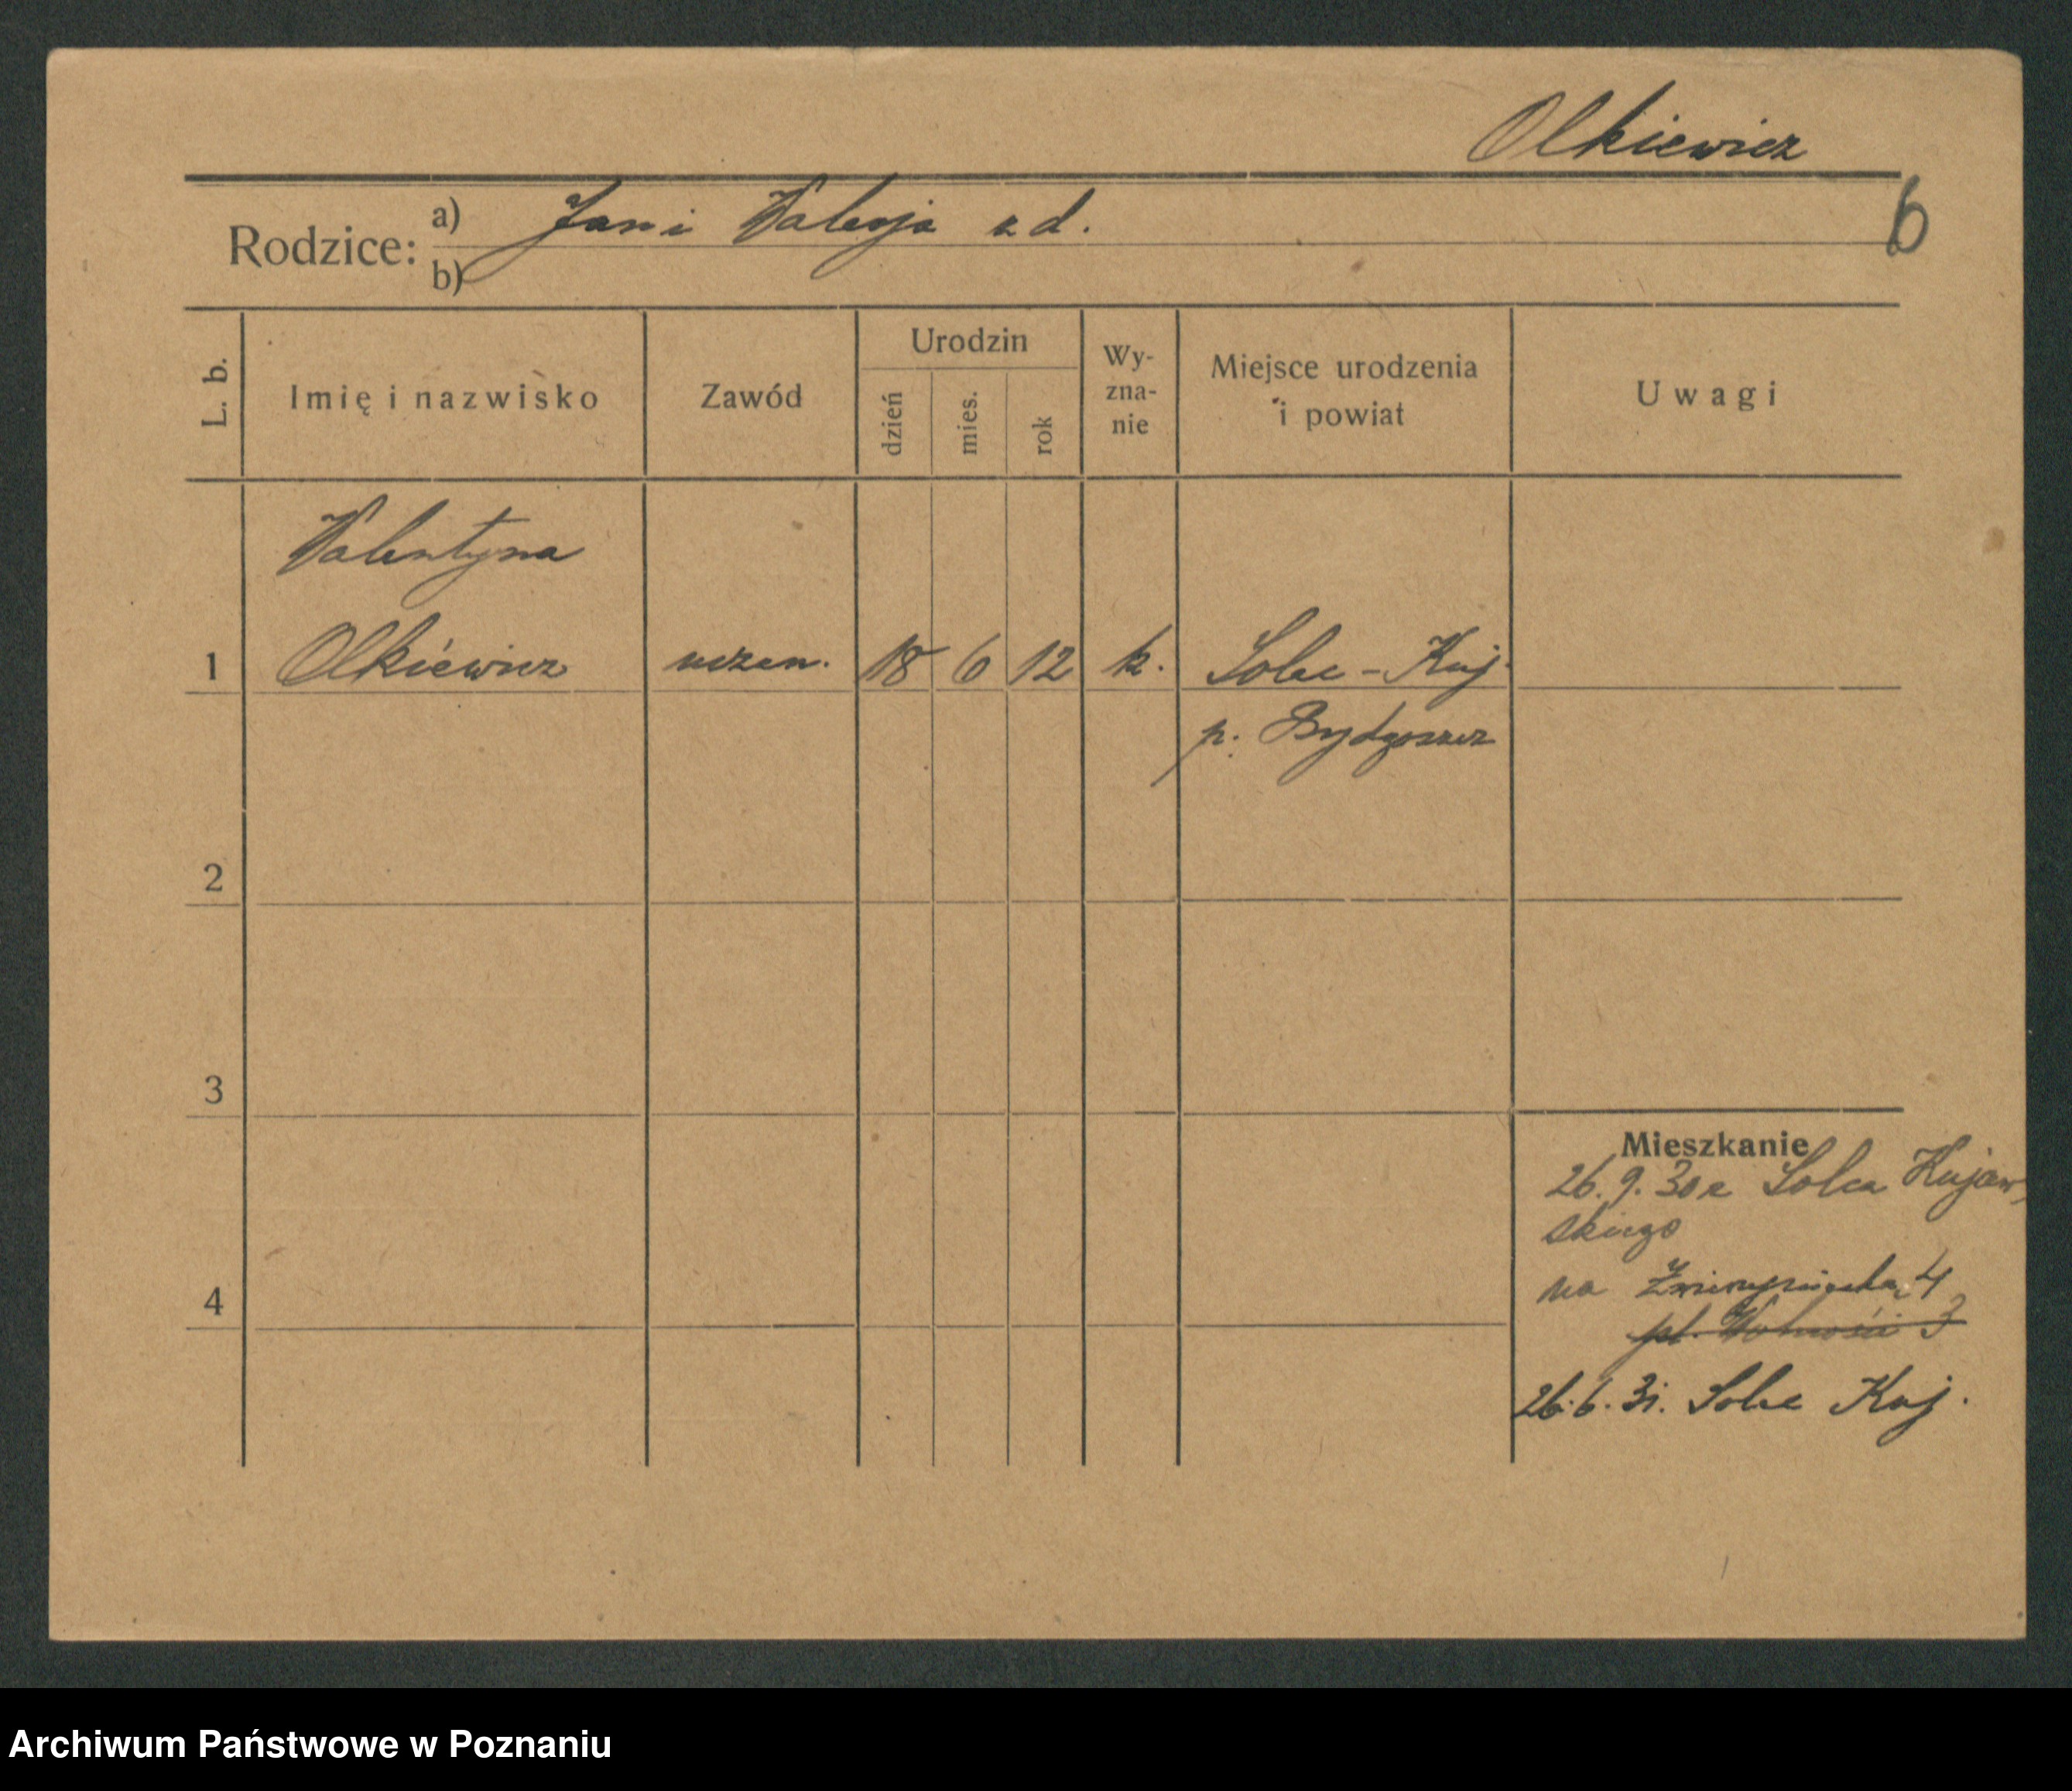 Olkiewicz
6
Rodzice: a) Jan i Valesja z d.
b)
L. b.
Imię i nazwisko
Zawód
Urodzin
dzień
mies.
rok
Wy-
zna-
nie
Miejsce urodzenia
i powiat
Uwagi
Valentyna
1 Olkiewicz uczen. 18 6 12 k. Solec-Kuj.
p. Bydgoszcz
2
3
4
Mieszkanie
26.9.30 z Solca Kujaw-
skiego
na Zwierzyniecka 4
pl. Wolności 3
26.6.31. Solec Kuj.
Archiwum Państwowe w Poznaniu